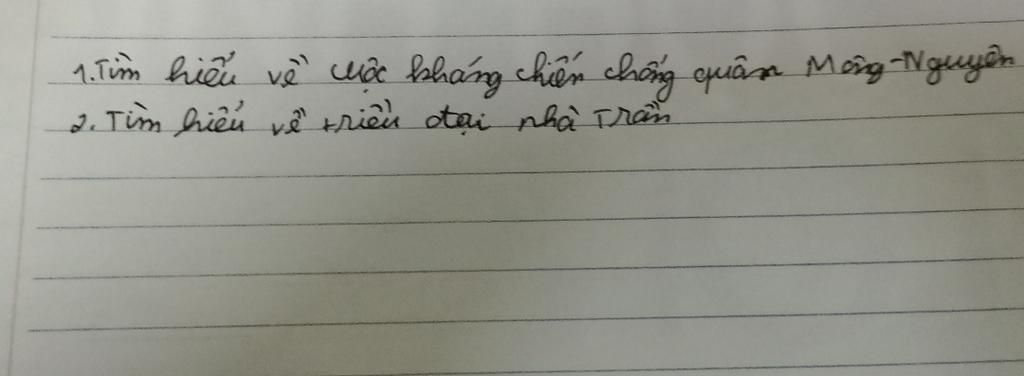 1. Tìm hiểu về cuộc kháng chiến chống quân Mông-Nguyên
2. Tìm hiểu về triều đại nhà Trần